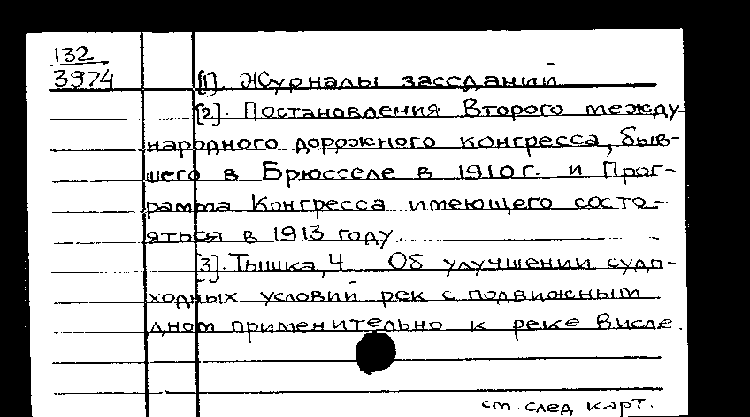 132
3974
[1]. Журналы заседаний
[2]. Постановления Второго между
народного дорожного конгресса, быв-
шего в Брюсселе в 1910 г. и Прог-
рамма Конгресса имеющего состо-
яться в 1913 году.
[3]. Тышка, Ч. Об улучшении судо-
ходных условий рек с подвижным
дном применительно к реке Висле.
см. след. карт.